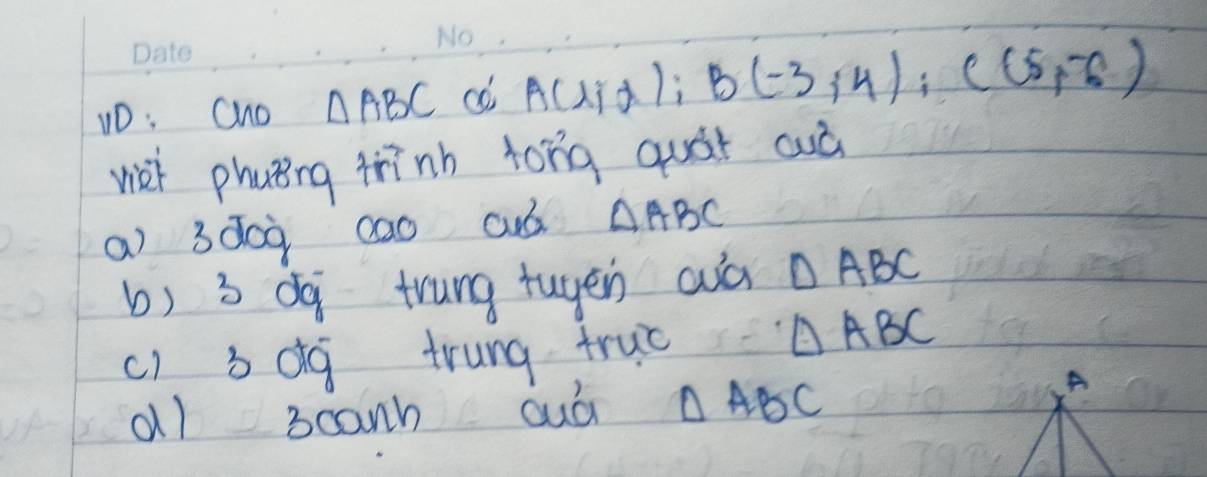 Date No
VD: Cho ΔABC có A(1;2); B(-3;4); C(5;-6)
viết phương trình tổng quát của
a) 3 đog cao của ΔABC
b) 3 đg trung tuyến của Δ ABC
c) 3 đtg trung trực Δ ABC
d) 3 canh của Δ ABC
A